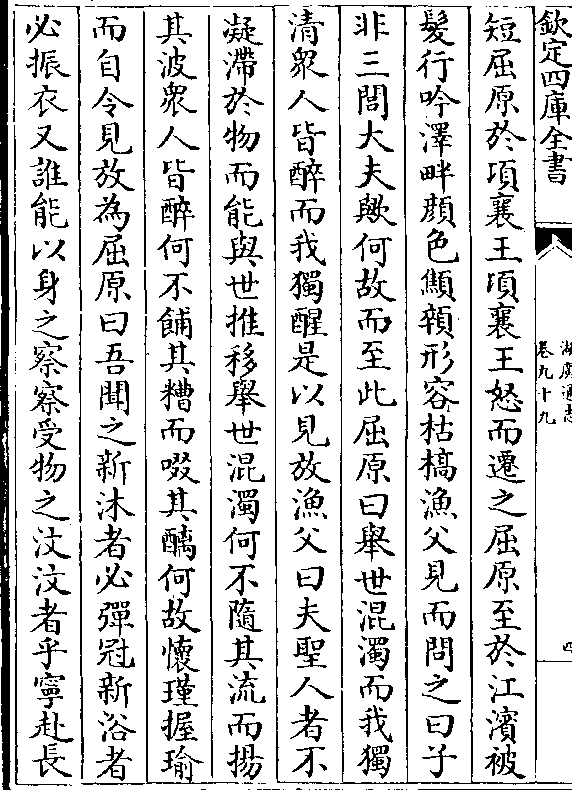 欽定四庫全書
湖廣通志
卷九十九
四
短屈原於項襄王項襄王怒而遷之屈原至於江濱被
髪行吟澤畔顔色顦顇形容枯槁漁父見而問之曰子
非三閭大夫歟何故而至此屈原曰舉世混濁而我獨
清衆人皆醉而我獨醒是以見放漁父曰夫聖人者不
凝滯於物而能與世推移舉世混濁何不隨其流而揚
其波衆人皆醉何不餔其糟而啜其醨何故懷瑾握瑜
而自令見放為屈原曰吾聞之新沐者必彈冠新浴者
必振衣又誰能以身之察察受物之汶汶者乎寧赴長